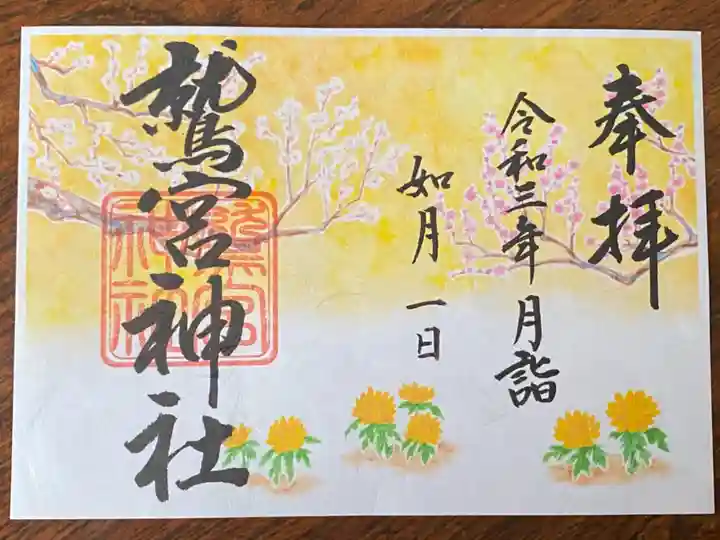 奉拝
令和三年月詣
如月一日
鷲宮神社
鷲宮
神社